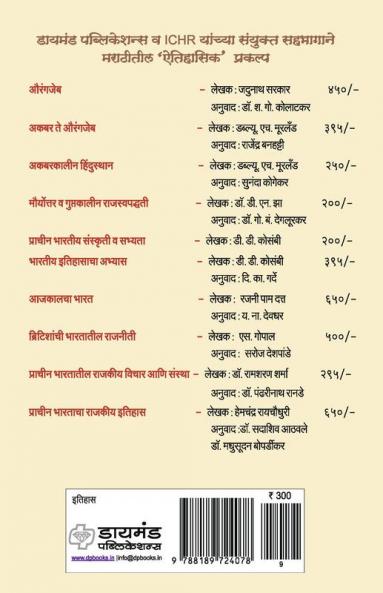 डायमंड पब्लिकेशन्स व ICHR यांच्या संयुक्त सहभागाने
मराठीतील ‘ऐतिहासिक’ प्रकल्प
औरंगजेब – लेखक : जदुनाथ सरकार ४५०/-
अनुवाद : डॉ. श. गो. कोलाटकर
अकबर ते औरंगजेब – लेखक : डब्ल्यू. एच. मूरलँड ३९५/-
अनुवाद : राजेंद्र बनहट्टी
अकबरकालीन हिंदुस्थान – लेखक : डब्ल्यू. एच. मूरलँड २५०/-
अनुवाद : सुनंदा कोगेकर
मौर्योत्तर व गुप्तकालीन राजस्वपद्धती – लेखक : डॉ. डी. एन. झा २००/-
अनुवाद : डॉ. गो. बं. देगलूरकर
प्राचीन भारतीय संस्कृती व सभ्यता – लेखक : डी. डी. कोसंबी २००/-
भारतीय इतिहासाचा अभ्यास – लेखक : डी. डी. कोसंबी ३९५/-
अनुवाद : दि. का. गर्दे
आजकालचा भारत – लेखक : रजनी पाम दत्त ६५०/-
अनुवाद : य. ना. देवधर
ब्रिटिशांची भारतातील राजनीती – लेखक : एस. गोपाल ५००/-
अनुवाद : सरोज देशपांडे
प्राचीन भारतातील राजकीय विचार आणि संस्था – लेखक : डॉ. रामशरण शर्मा २९५/-
अनुवाद : डॉ. पंढरीनाथ रानडे
प्राचीन भारताचा राजकीय इतिहास – लेखक : हेमचंद्र रायचौधुरी ६५०/-
अनुवाद :डॉ. सदाशिव आठवले
डॉ. मधुसूदन बोपर्डीकर
इतिहास
₹ 300
डायमंड
पब्लिकेशन्स
www.dpbooks.in |info@dpbooks.in
9 788189 724078
9